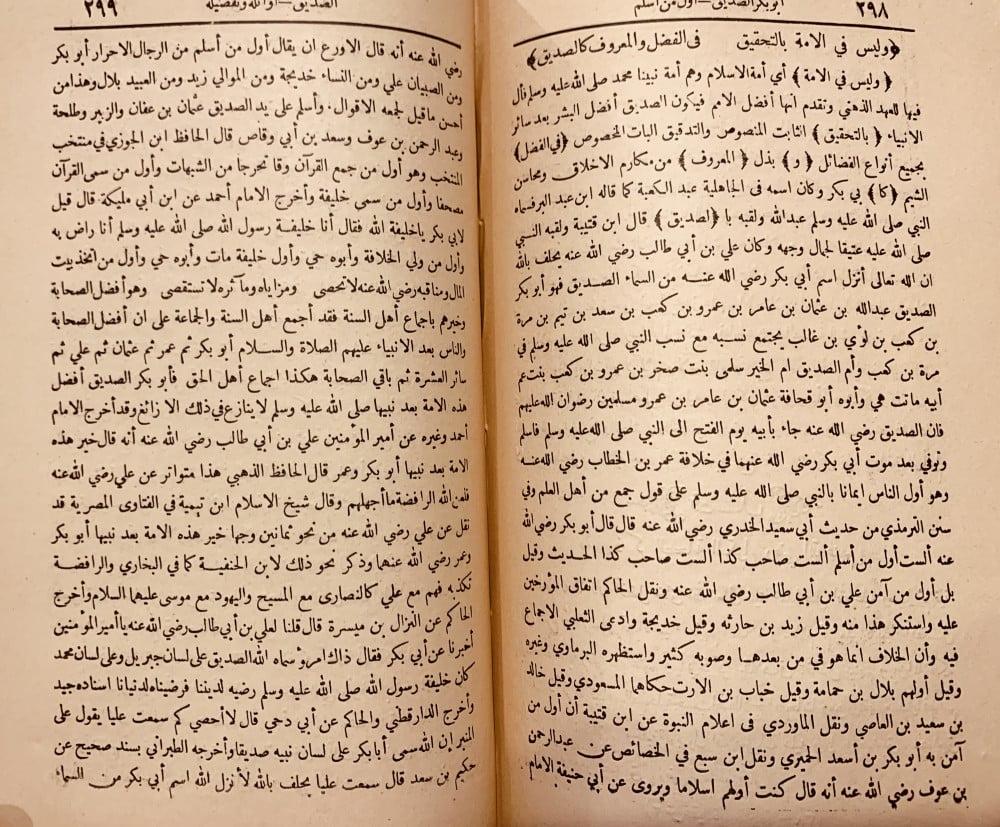 ٣٩٨ أبو بكر الصديق — أول من أسلم
﴿وليس في الامة بالتحقيق في الفضل والمعروف كالصديق﴾
﴿ وليس في الامة ﴾ أي أمة الاسلام وهم أمة نبينا محمد صلى الله عليه وسلم قال
فيها للعهد الذهني وتقدم انها أفضل الامم فيكون الصديق أفضل البشر بعد سائر
الانبياء ﴿ بالتحقيق ﴾ الثابت المنصوص والتدقيق البات المخصوص ﴿في الفضل﴾
بجميع أنواع الفضائل ﴿ و ﴾ بذل ﴿ المعروف ﴾ من مكارم الاخلاق ومحاسن
الشيم ﴿كا﴾ بي بكر وكان اسمه فى الجاهلية عبد الكعبة كما قاله ابن عبد البر فسماه
النبي صلى الله عليه وسلم عبدالله ولقبه با ﴿لصديق ﴾ قال ابن قتيبة ولقبه النبي
صلى الله عليه عتيقا لجمال وجهه وكان علي بن أبي طالب رضي الله عنه يحلف بالله
ان الله تعالى أنزل اسم أبي بكر رضي الله عنه من السماء الصديق فهو أبو بكر
الصديق عبدالله بن عثمان بن عامر بن عمرو بن كعب بن سعد بن تيم بن مرة
بن كعب بن لؤي بن غالب يجتمع نسبه مع نسب النبي صلى الله عليه وسلم في
مرة بن كعب وأم الصديق ام الخير سلمى بنت صخر بن عمرو بن كعب بنت عم
أبيه ماتت هي وأبوه أبو قحافة عثمان بن عامر بن عمرو مسلمين رضوان الله عليهم
فان الصديق رضي الله عنه جاء بأبيه يوم الفتح الى النبي صلى الله عليه وسلم فاسلم
وتوفي بعد موت أبي بكر رضي الله عنهما في خلافة عمر بن الخطاب رضي الله عنه
وهو أول الناس ايمانا بالنبي صلى الله عليه وسلم على قول جمع من أهل العلم وفي
سنن الترمذي من حديث أبي سعيد الخدري رضي الله عنه قال قال أبو بكر رضي الله
عنه ألست أول من أسلم ألست صاحب كذا ألست صاحب كذا الحديث وقيل
بل أول من آمن علي بن أبي طالب رضي الله عنه ونقل الحاكم اتفاق المؤرخين
عليه واستنكر هذا منه وقيل زيد بن حارثه وقيل خديجة وادعى الثعلبي الاجماع
فيه وأن الخلاف انما هو في من بعدها وصوبه كثير واستظهره البرماوي وغيره
وقيل أولهم بلال بن حمامة وقيل خباب بن الارت حكاهما المسعودي وقيل خالد
بن سعيد بن العاصي ونقل الماوردي فى اعلام النبوة عن ابن قتيبة أن أول من
آمن به أبو بكر بن أسعد الحميري ونقل ابن سبع في الخصائص عن عبدالرحمن
بن عوف رضي الله عنه أنه قال كنت أولهم اسلاما ويروى عن أبي حنيفة الامام
الصديق — أوائله وتفضيله ٣٩٩
رضي الله عنه أنه قال الاورع ان يقال أول من أسلم من الرجال الاحرار أبو بكر
ومن الصبيان علي ومن النساء خديجة ومن الموالي زيد ومن العبيد بلال وهذا من
أحسن ما قيل لجمعه الاقوال. وأسلم على يد الصديق عثمان بن عفان والزبير وطلحة
وعبد الرحمن بن عوف وسعد بن أبي وقاص قال الحافظ ابن الجوزي في منتخب
المنتخب وهو أول من جمع القرآن وقا تحرجا من الشبهات وأول من سمى القرآن
مصحفا وأول من سمى خليفة وأخرج الامام أحمد عن ابن أبي مليكة قال قيل
لابي بكر يا خليفة الله فقال أنا خليفة رسول الله صلى الله عليه وسلم أنا راض به
وأول من ولي الخلافة وأبوه حي وأول خليفة مات وأبوه حي وأول من اتخذ بيت
المال ومناقبه رضي الله عنه لا تحصى ومزاياه ومآثره لا تستقصى وهو أفضل الصحابة
وخيرهم باجماع أهل السنة فقد أجمع أهل السنة والجماعة على ان أفضل الصحابة
والناس بعد الانبياء عليهم الصلاة والسلام أبو بكر ثم عمر ثم عثمان ثم علي ثم
سائر العشرة ثم باقي الصحابة هكذا اجماع أهل الحق فأبو بكر الصديق أفضل
هذه الامة بعد نبيها صلى الله عليه وسلم لا ينازع في ذلك الا زائغ وقد أخرج الامام
أحمد وغيره عن أمير المؤمنين علي بن أبي طالب رضي الله عنه أنه قال خير هذه
الامة بعد نبيها أبو بكر وعمر قال الحافظ الذهبي هذا متواتر عن علي رضي الله عنه
فلعن الله الرافضة ما أجهلهم وقال شيخ الاسلام ابن تيمية في الفتاوى المصرية قد
نقل عن علي رضي الله عنه من نحو ثمانين وجها خير هذه الامة بعد نبيها أبو بكر
وعمر رضي الله عنهما وذكر نحو ذلك لابن الحنفية كما في البخاري والرافضة
تكذبه فهم مع علي كالنصارى مع المسيح واليهود مع موسى عليهما السلام وأخرج
الحاكم عن النزال بن ميسرة قال قلنا لعلي بن أبي طالب رضي الله عنه يا أمير المؤمنين
أخبرنا عن أبي بكر فقال ذاك امرؤ سماه الله الصديق على لسان جبريل وعلى لسان محمد
كان خليفة رسول الله صلى الله عليه وسلم رضيه لديننا فرضيناه لدنيانا اسناده جيد
وأخرج الدارقطني والحاكم عن أبي دحي قال لا أحصي كم سمعت عليا يقول على
المنبر إن الله سمى أبا بكر على لسان نبيه صديقا وأخرجه الطبراني بسند صحيح عن
حكيم بن سعد قال سمعت عليا يحلف بالله لأنزل الله اسم أبي بكر من السماء